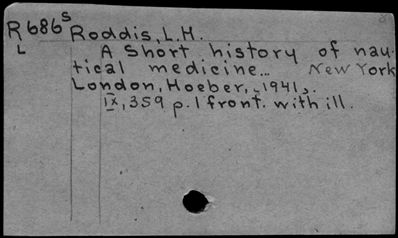 R686S Roddis, L.H.
L
A Short history of nau-
tical medicine... New York
London, Hoeber, 1941,.
IX, 359 p. 1 front. with ill.